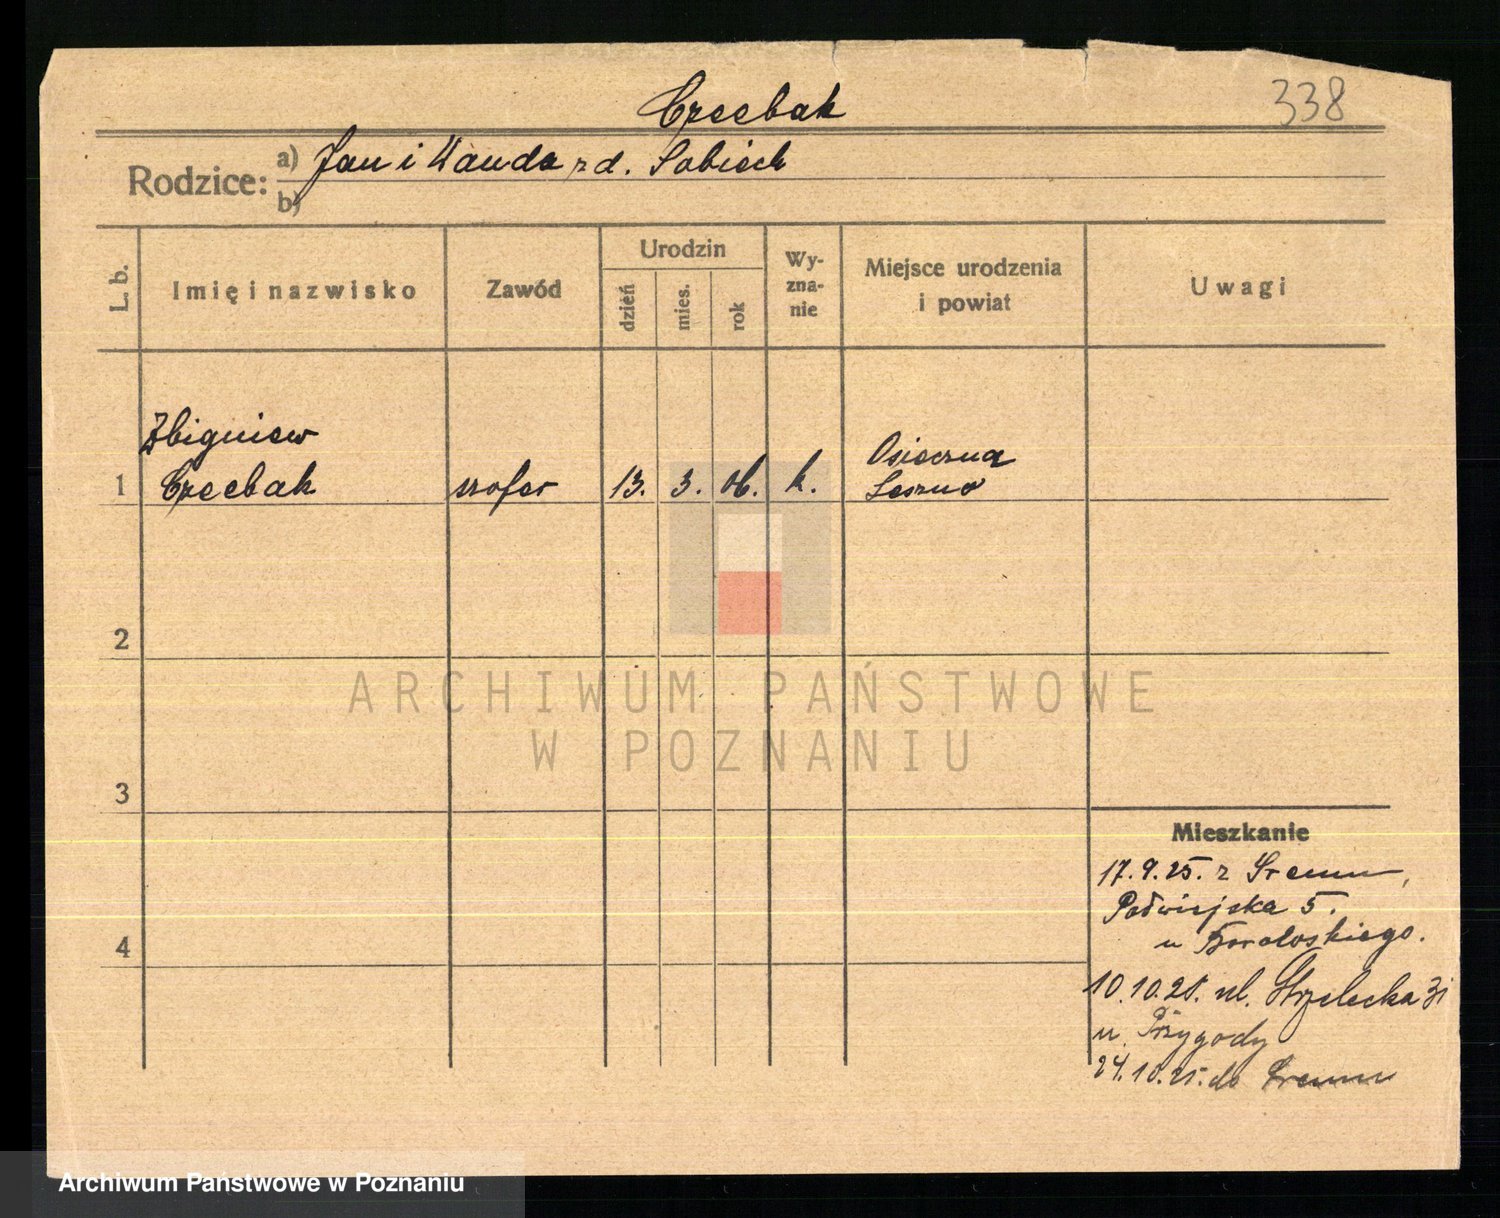 Czeebak
338
Rodzice: a) Jan i Wanda zd. Sobieck
b)
L. b.
Imię i nazwisko
Zawód
Urodzin
dzień
mies.
rok
Wy-
zna-
nie
Miejsce urodzenia
i powiat
Uwagi
Zbigniew
1 Czeebak szofer 13. 3. 06. k. Osieczna
Leszno
2
3
4
Mieszkanie
17.9.25. z Śremu,
Podwiejska 5.
u
10.10.25. ul. Strzelecka 31
u. Przygody
24.10.25. do Śremu
ARCHIWUM PAŃSTWOWE
W POZNANIU
Archiwum Państwowe w Poznaniu